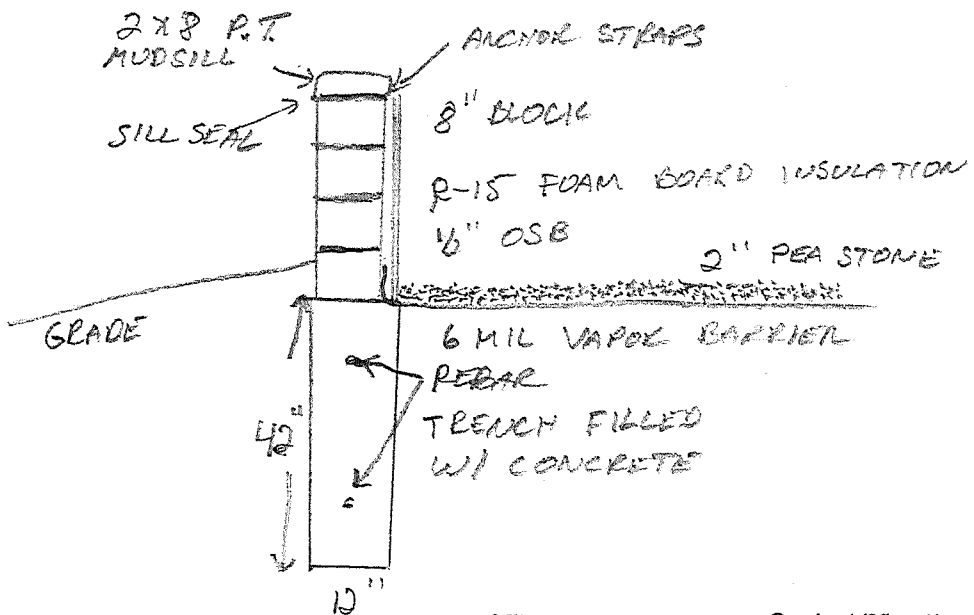 2 x 8 P.T.
MUDSILL
ANCHOR STRAPS
SILL SEAL
8" BLOCK
R-15 FOAM BOARD INSULATION
1/2" OSB
2" PEA STONE
GRADE
6 MIL VAPOR BARRIER
REBAR
42"
TRENCH FILLED
W/ CONCRETE
12"